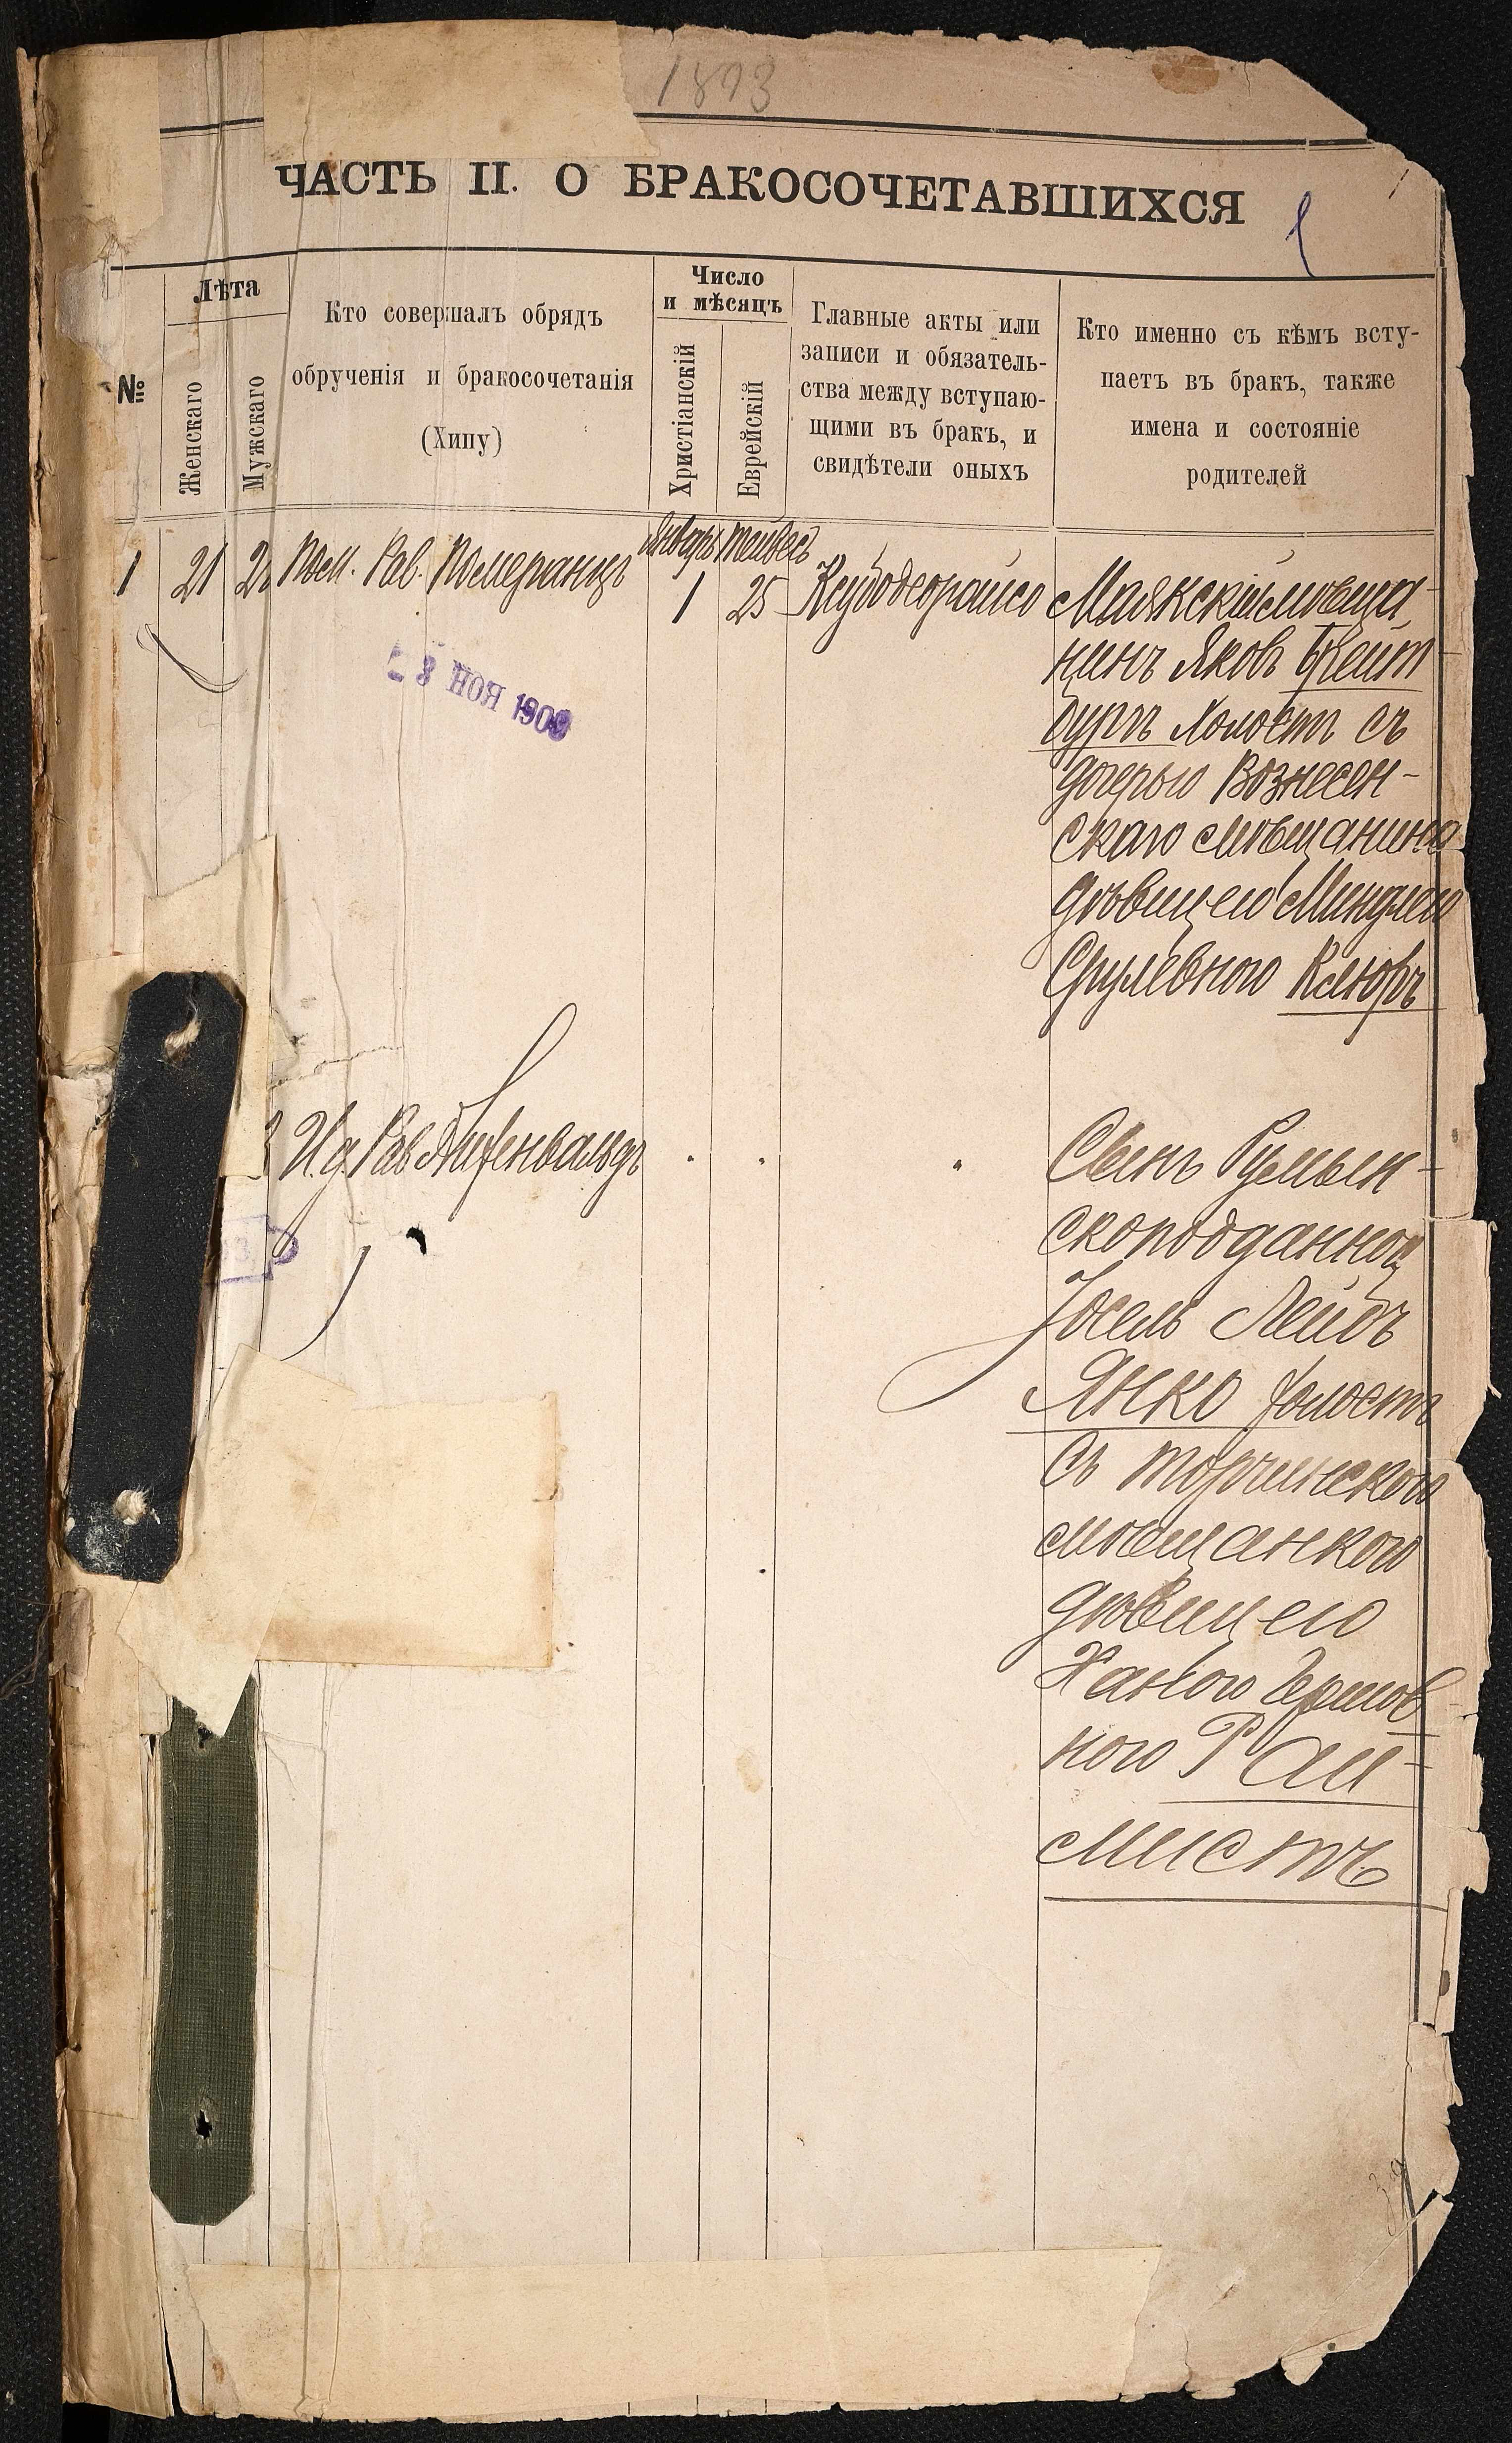 1893
ЧАСТЬ II. О БРАКОСОЧЕТАВШИХСЯ
1
№
Лѣта
Женскаго
Мужскаго
Кто совершалъ обрядъ
обрученія и бракосочетанія
(Хипу)
Число
и мѣсяцъ
Христіанскій
Еврейскій
Главные акты или
записи и обязатель-
ства между вступаю-
щими въ бракъ, и
свидѣтели оныхъ
Кто именно съ кѣмъ всту-
паетъ въ бракъ, также
имена и состояніе
родителей
Январь Тейвесъ
1 21 Пом. Рав. Померанцъ 1 25 Ксубодеорайсо
Маякскій мѣща-
нинъ Яковъ
бургъ холостъ съ
дочерью Вознесен-
скаго мѣщанина
дѣвицею Миндлею
Срулевною Клюръ
28 НОЯ 1900
И. д. Рав. Лихтенвальдъ
Сынъ Румын-
скоподданнаго
Іосель Лейбъ
Янко холостъ
съ торчинскою
мѣщанкою
дѣвицею
Ханою Гершов-
ною Рай-
мистъ